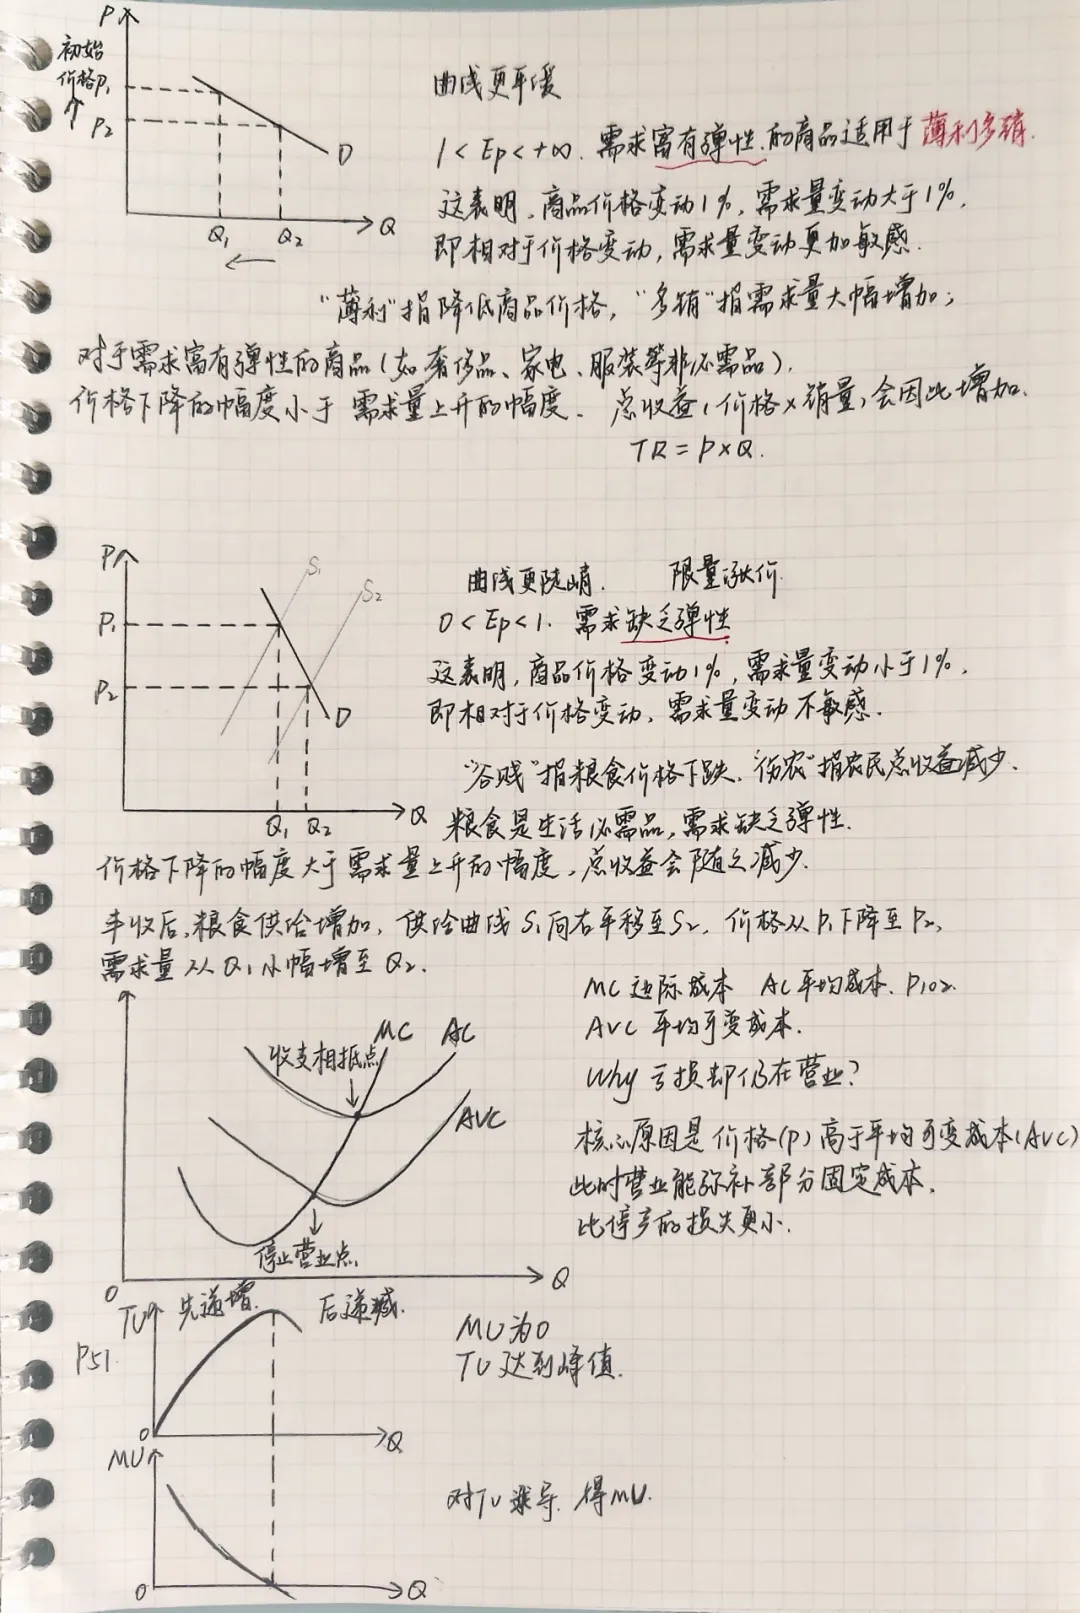 P
初始
价格P₁
P₂
D
Q₁ Q₂ Q
曲线更平缓
1 < Ep < +∞. 需求富有弹性的商品适用于薄利多销.
这表明, 商品价格变动1%, 需求量变动大于1%,
即相对于价格变动, 需求量变动更加敏感.
“薄利”指降低商品价格, “多销”指需求量大幅增加;
对于需求富有弹性的商品(如奢侈品、家电、服装等非必需品).
价格下降的幅度小于需求量上升的幅度. 总收益(价格×销量)会因此增加.
TR = P×Q.
P
S₁
S₂
P₁
P₂
D
Q₁ Q₂ Q
曲线更陡峭. 限量涨价.
0 < Ep < 1. 需求缺乏弹性
这表明, 商品价格变动1%, 需求量变动小于1%,
即相对于价格变动, 需求量变动不敏感.
“谷贱”指粮食价格下跌. “伤农”指农民总收益减少.
粮食是生活必需品, 需求缺乏弹性.
价格下降的幅度大于需求量上升的幅度, 总收益会随之减少.
丰收后, 粮食供给增加, 供给曲线S₁向右平移至S₂, 价格从P₁下降至P₂,
需求量从Q₁小幅增至Q₂.
MC AC
收支相抵点
AVC
停止营业点
0 Q
MC 边际成本 AC 平均成本. P102.
AVC 平均可变成本.
Why 亏损却仍在营业?
核心原因是价格(P)高于平均可变成本(AVC)
此时营业能弥补部分固定成本,
比停产的损失更小.
TU 先递增. 后递减.
P51.
0 Q
MU为0
TU达到峰值.
MU
0 Q
对TU求导. 得MU.